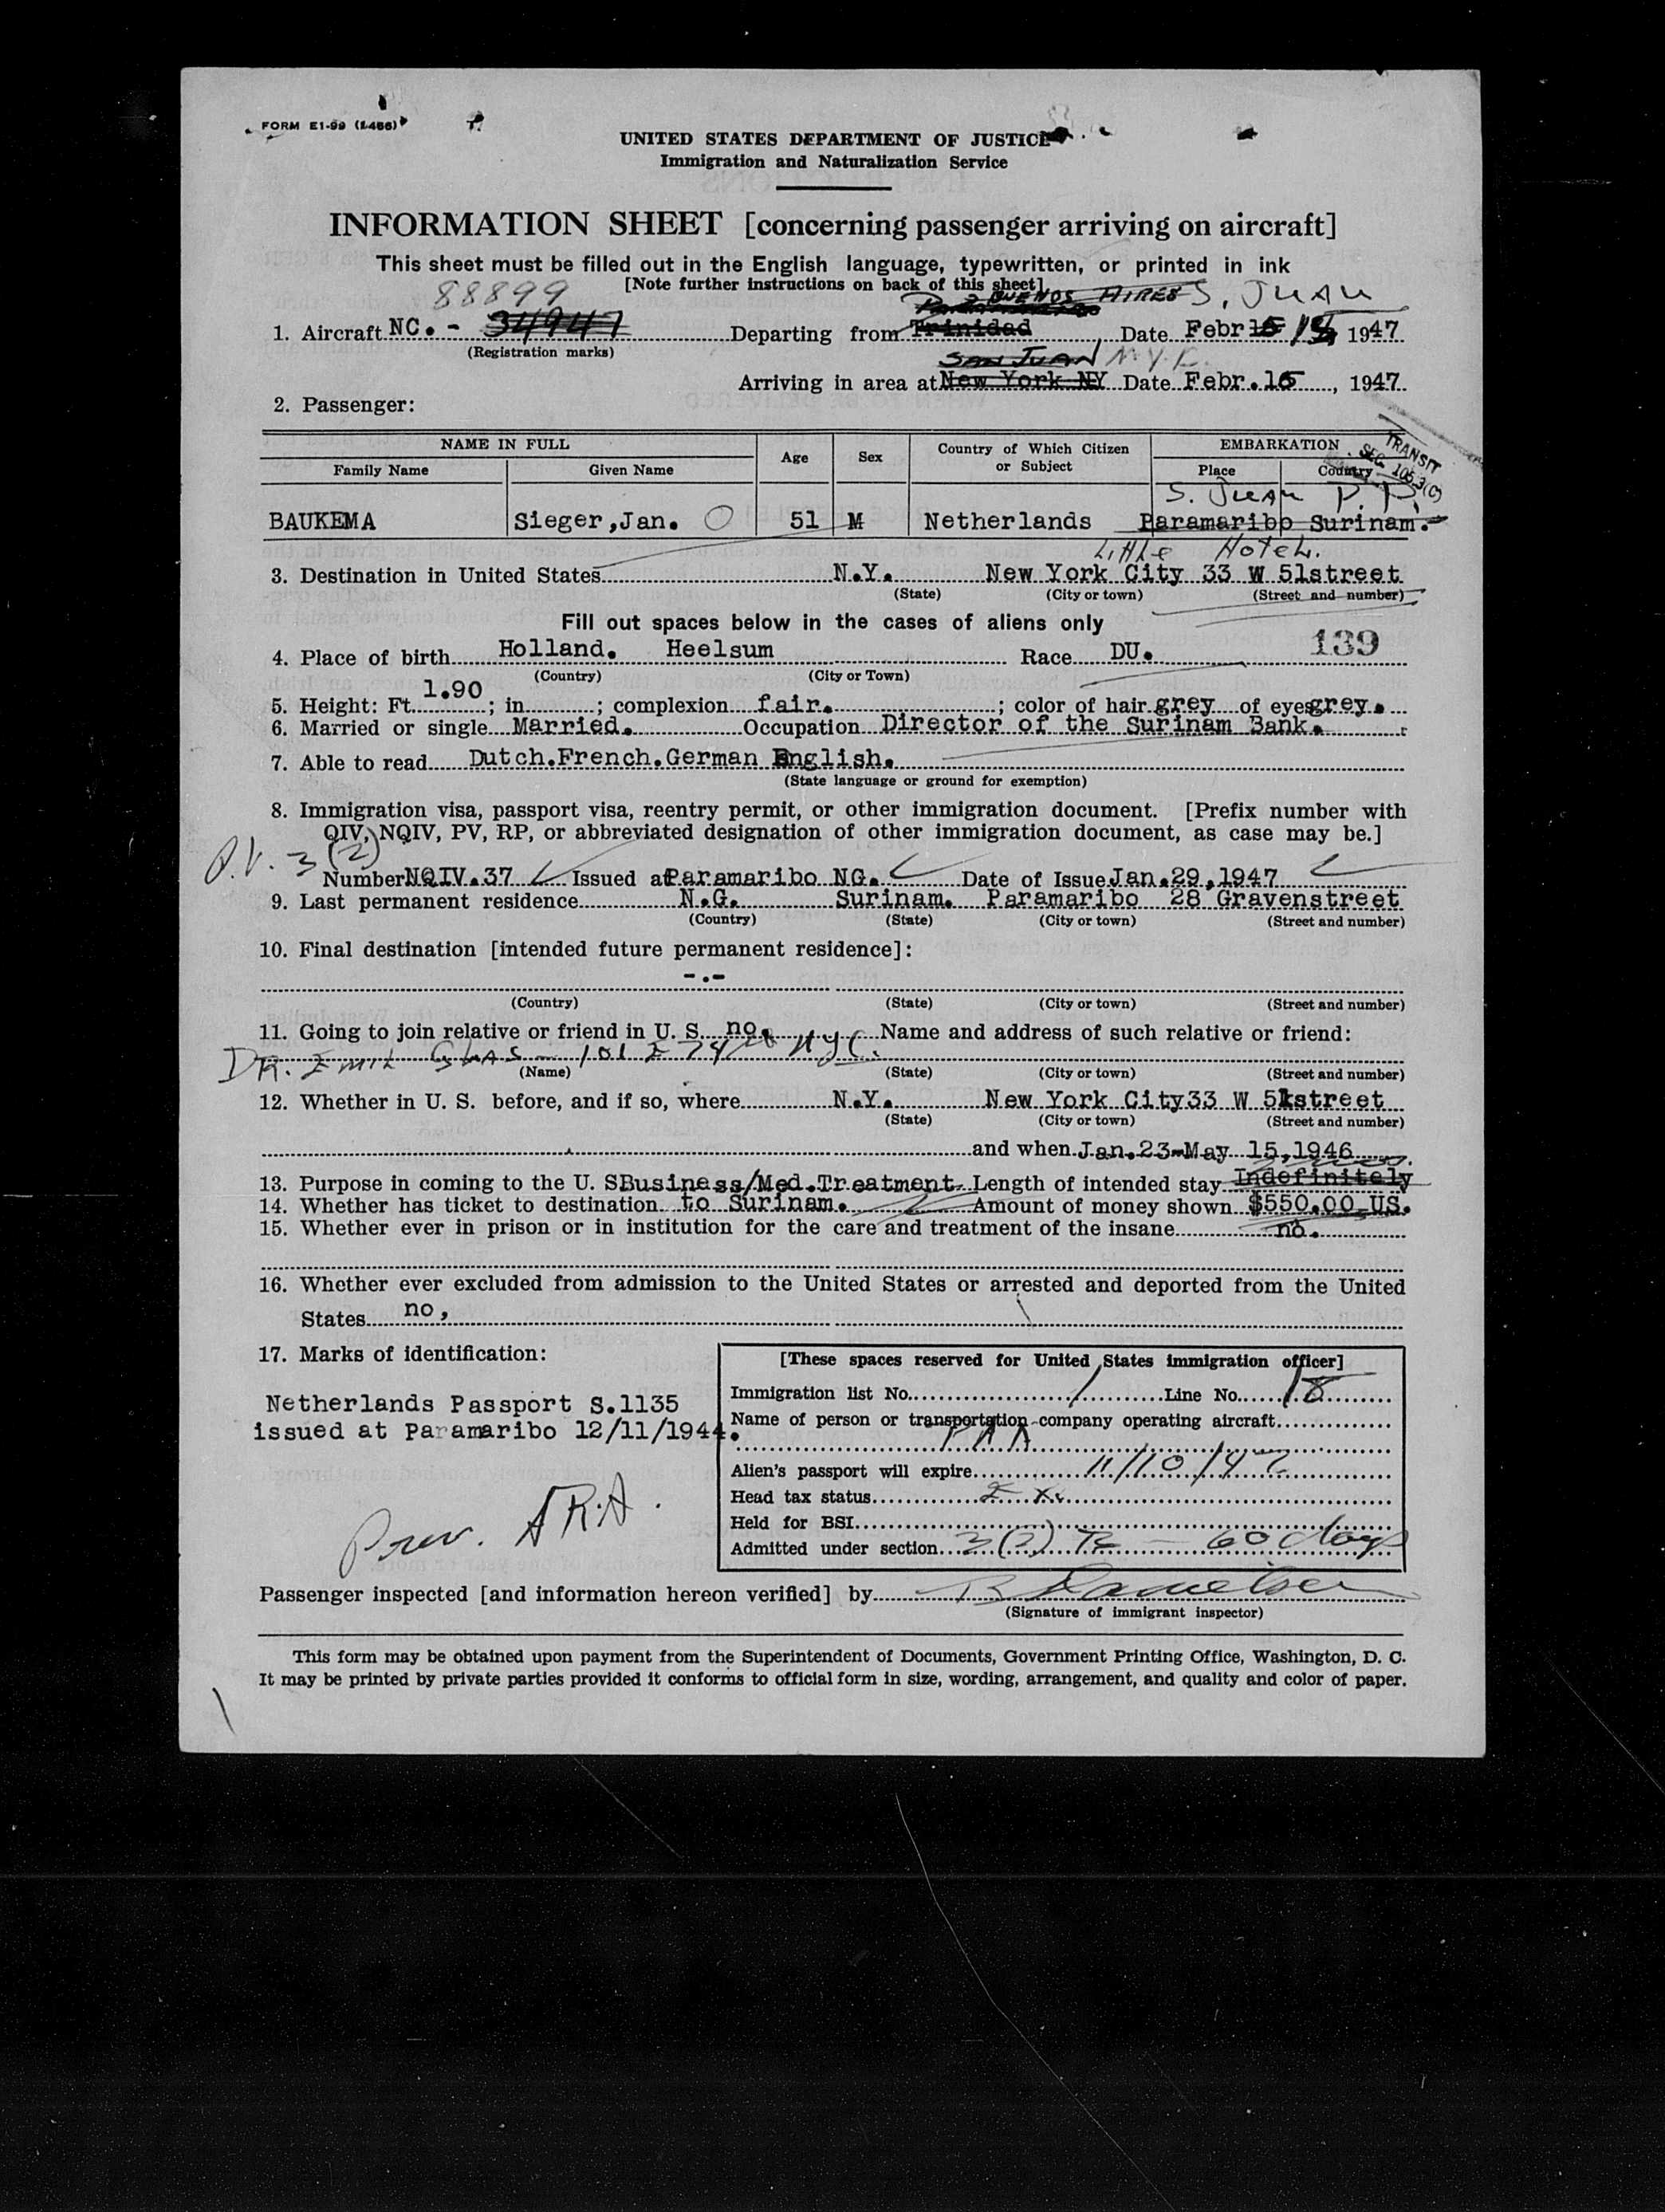 FORM E1-99 (1-466)
UNITED STATES DEPARTMENT OF JUSTICE
Immigration and Naturalization Service
INFORMATION SHEET [concerning passenger arriving on aircraft]
This sheet must be filled out in the English language, typewritten, or printed in ink
[Note further instructions on back of this sheet]
88899 BUENOS AIRES S. JUAN
1. Aircraft NC.- 34947 Departing from Trinidad Date Febr 15 1947
(Registration marks)
SAN JUAN N.Y.C.
Arriving in area at New York NY Date Febr. 15, 1947
2. Passenger:
NAME IN FULL Age Sex Country of Which Citizen or Subject EMBARKATION
Family Name Given Name Place Country
TRANSIT SEC. 105.3(C)
S. JUAN P.R.
BAUKEMA Sieger,Jan. 51 M Netherlands Paramaribo Surinam.
Little Hotel.
3. Destination in United States N.Y. New York City 33 W 51street
(State) (City or town) (Street and number)
Fill out spaces below in the cases of aliens only
139
4. Place of birth Holland. Heelsum Race DU.
(Country) (City or Town)
5. Height: Ft. 1.90; in.; complexion fair.; color of hair grey of eyes grey.
6. Married or single Married. Occupation Director of the Surinam Bank.
7. Able to read Dutch.French.German English.
(State language or ground for exemption)
8. Immigration visa, passport visa, reentry permit, or other immigration document. [Prefix number with
QIV, NQIV, PV, RP, or abbreviated designation of other immigration document, as case may be.]
P.V. 3 (2)
Number NQIV.37 Issued at Paramaribo NG. Date of Issue Jan.29,1947
9. Last permanent residence N.G. Surinam. Paramaribo 28 Gravenstreet
(Country) (State) (City or town) (Street and number)
10. Final destination [intended future permanent residence]:
-.-
(Country) (State) (City or town) (Street and number)
11. Going to join relative or friend in U. S. no. Name and address of such relative or friend:
DR. EMIL 101 E 74 NYC.
(Name) (State) (City or town) (Street and number)
12. Whether in U. S. before, and if so, where N.Y. New York City 33 W 51street
(State) (City or town) (Street and number)
and when Jan.23-May 15,1946
13. Purpose in coming to the U. S. Business/Med.Treatment Length of intended stay Indefinitely
14. Whether has ticket to destination to Surinam. Amount of money shown $550.00 US.
15. Whether ever in prison or in institution for the care and treatment of the insane no.
16. Whether ever excluded from admission to the United States or arrested and deported from the United
States no,
17. Marks of identification:
Netherlands Passport S.1135
issued at Paramaribo 12/11/1944.
[These spaces reserved for United States immigration officer]
Immigration list No. 1 Line No. 18
Name of person or transportation company operating aircraft
PAA
Alien's passport will expire 11/10/47
Head tax status Ex.
Held for BSI
Admitted under section 3(2) 60 days
Passenger inspected [and information hereon verified] by
(Signature of immigrant inspector)
This form may be obtained upon payment from the Superintendent of Documents, Government Printing Office, Washington, D. C.
It may be printed by private parties provided it conforms to official form in size, wording, arrangement, and quality and color of paper.